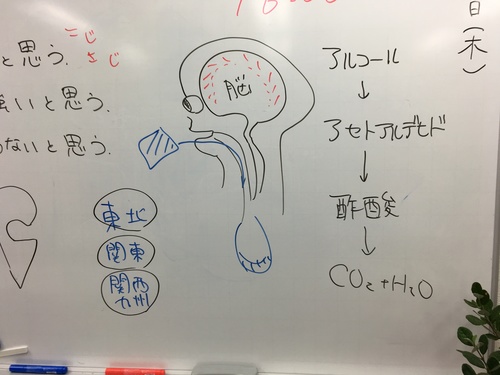 日(木)
こじ
と思う. さじ
強いと思う.
ないと思う.
脳
アルコール
↓
アセトアルデヒド
↓
酢酸
↓
CO₂+H₂O
東北
関東
関西
九州